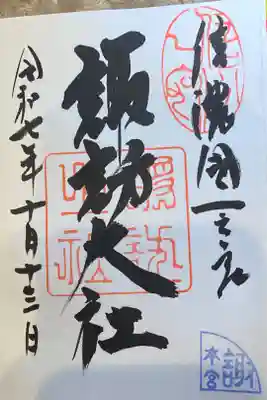 信濃國一之宮
諏訪大社
令和七年十月十三日
諏訪
大社
本宮